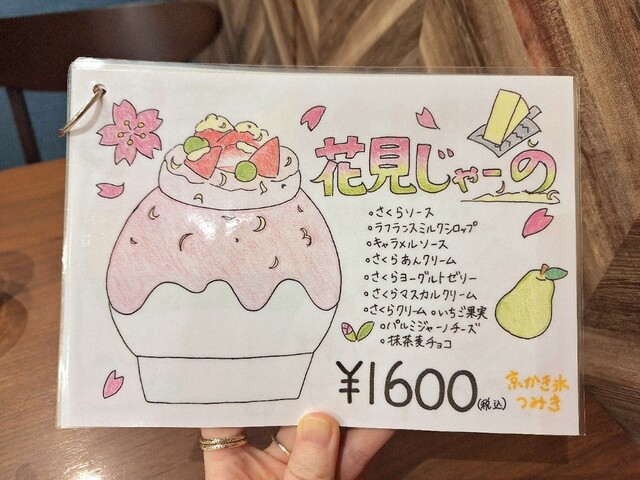 花見じゃーの
○さくらソース
○ラフランスミルクシロップ
○キャラメルソース
○さくらあんクリーム
○さくらヨーグルトゼリー
○さくらマスカルクリーム
○さくらクリーム ○いちご果実
○パルミジャーノチーズ
○抹茶麦チョコ
¥1600(税込)
京かき氷
つみき